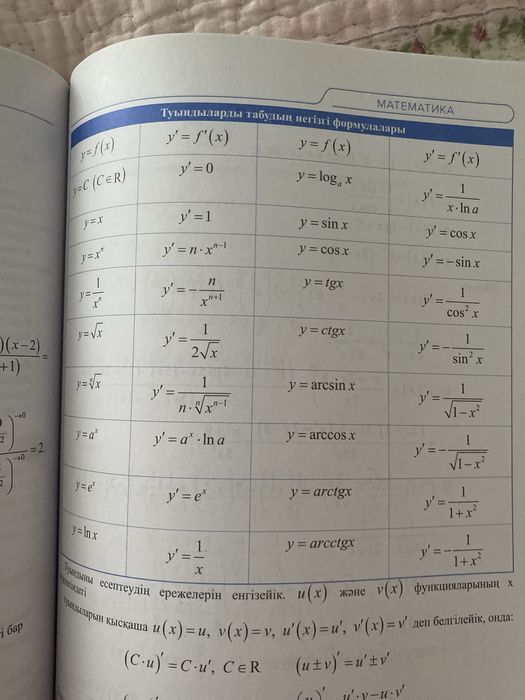 МАТЕМАТИКА
Туындыларды табудың негізгі формулалары
y = f(x) y' = f'(x) y = f(x) y' = f'(x)
y = C (C∈R) y' = 0 y = logₐ x y' = 1/(x·ln a)
y = x y' = 1 y = sin x y' = cos x
y = xⁿ y' = n·xⁿ⁻¹ y = cos x y' = −sin x
y = 1/xⁿ y' = −n/xⁿ⁺¹ y = tgx y' = 1/cos² x
y = √x y' = 1/(2√x) y = ctgx y' = −1/sin² x
y = ⁿ√x y' = 1/(n·ⁿ√(xⁿ⁻¹)) y = arcsin x y' = 1/√(1−x²)
y = aˣ y' = aˣ·ln a y = arccos x y' = −1/√(1−x²)
y = eˣ y' = eˣ y = arctgx y' = 1/(1+x²)
y = ln x y' = 1/x y = arcctgx y' = −1/(1+x²)
Туындыны есептеудің ережелерін енгізейік. u(x) және v(x) функцияларының x
туындыларын қысқаша u(x) = u, v(x) = v, u'(x) = u', v'(x) = v' деп белгілейік, онда:
(C·u)' = C·u', C∈R (u±v)' = u'±v'
u'·v−u·v'
)(x−2)
+1)
=
→0
→0
= 2.
і бар